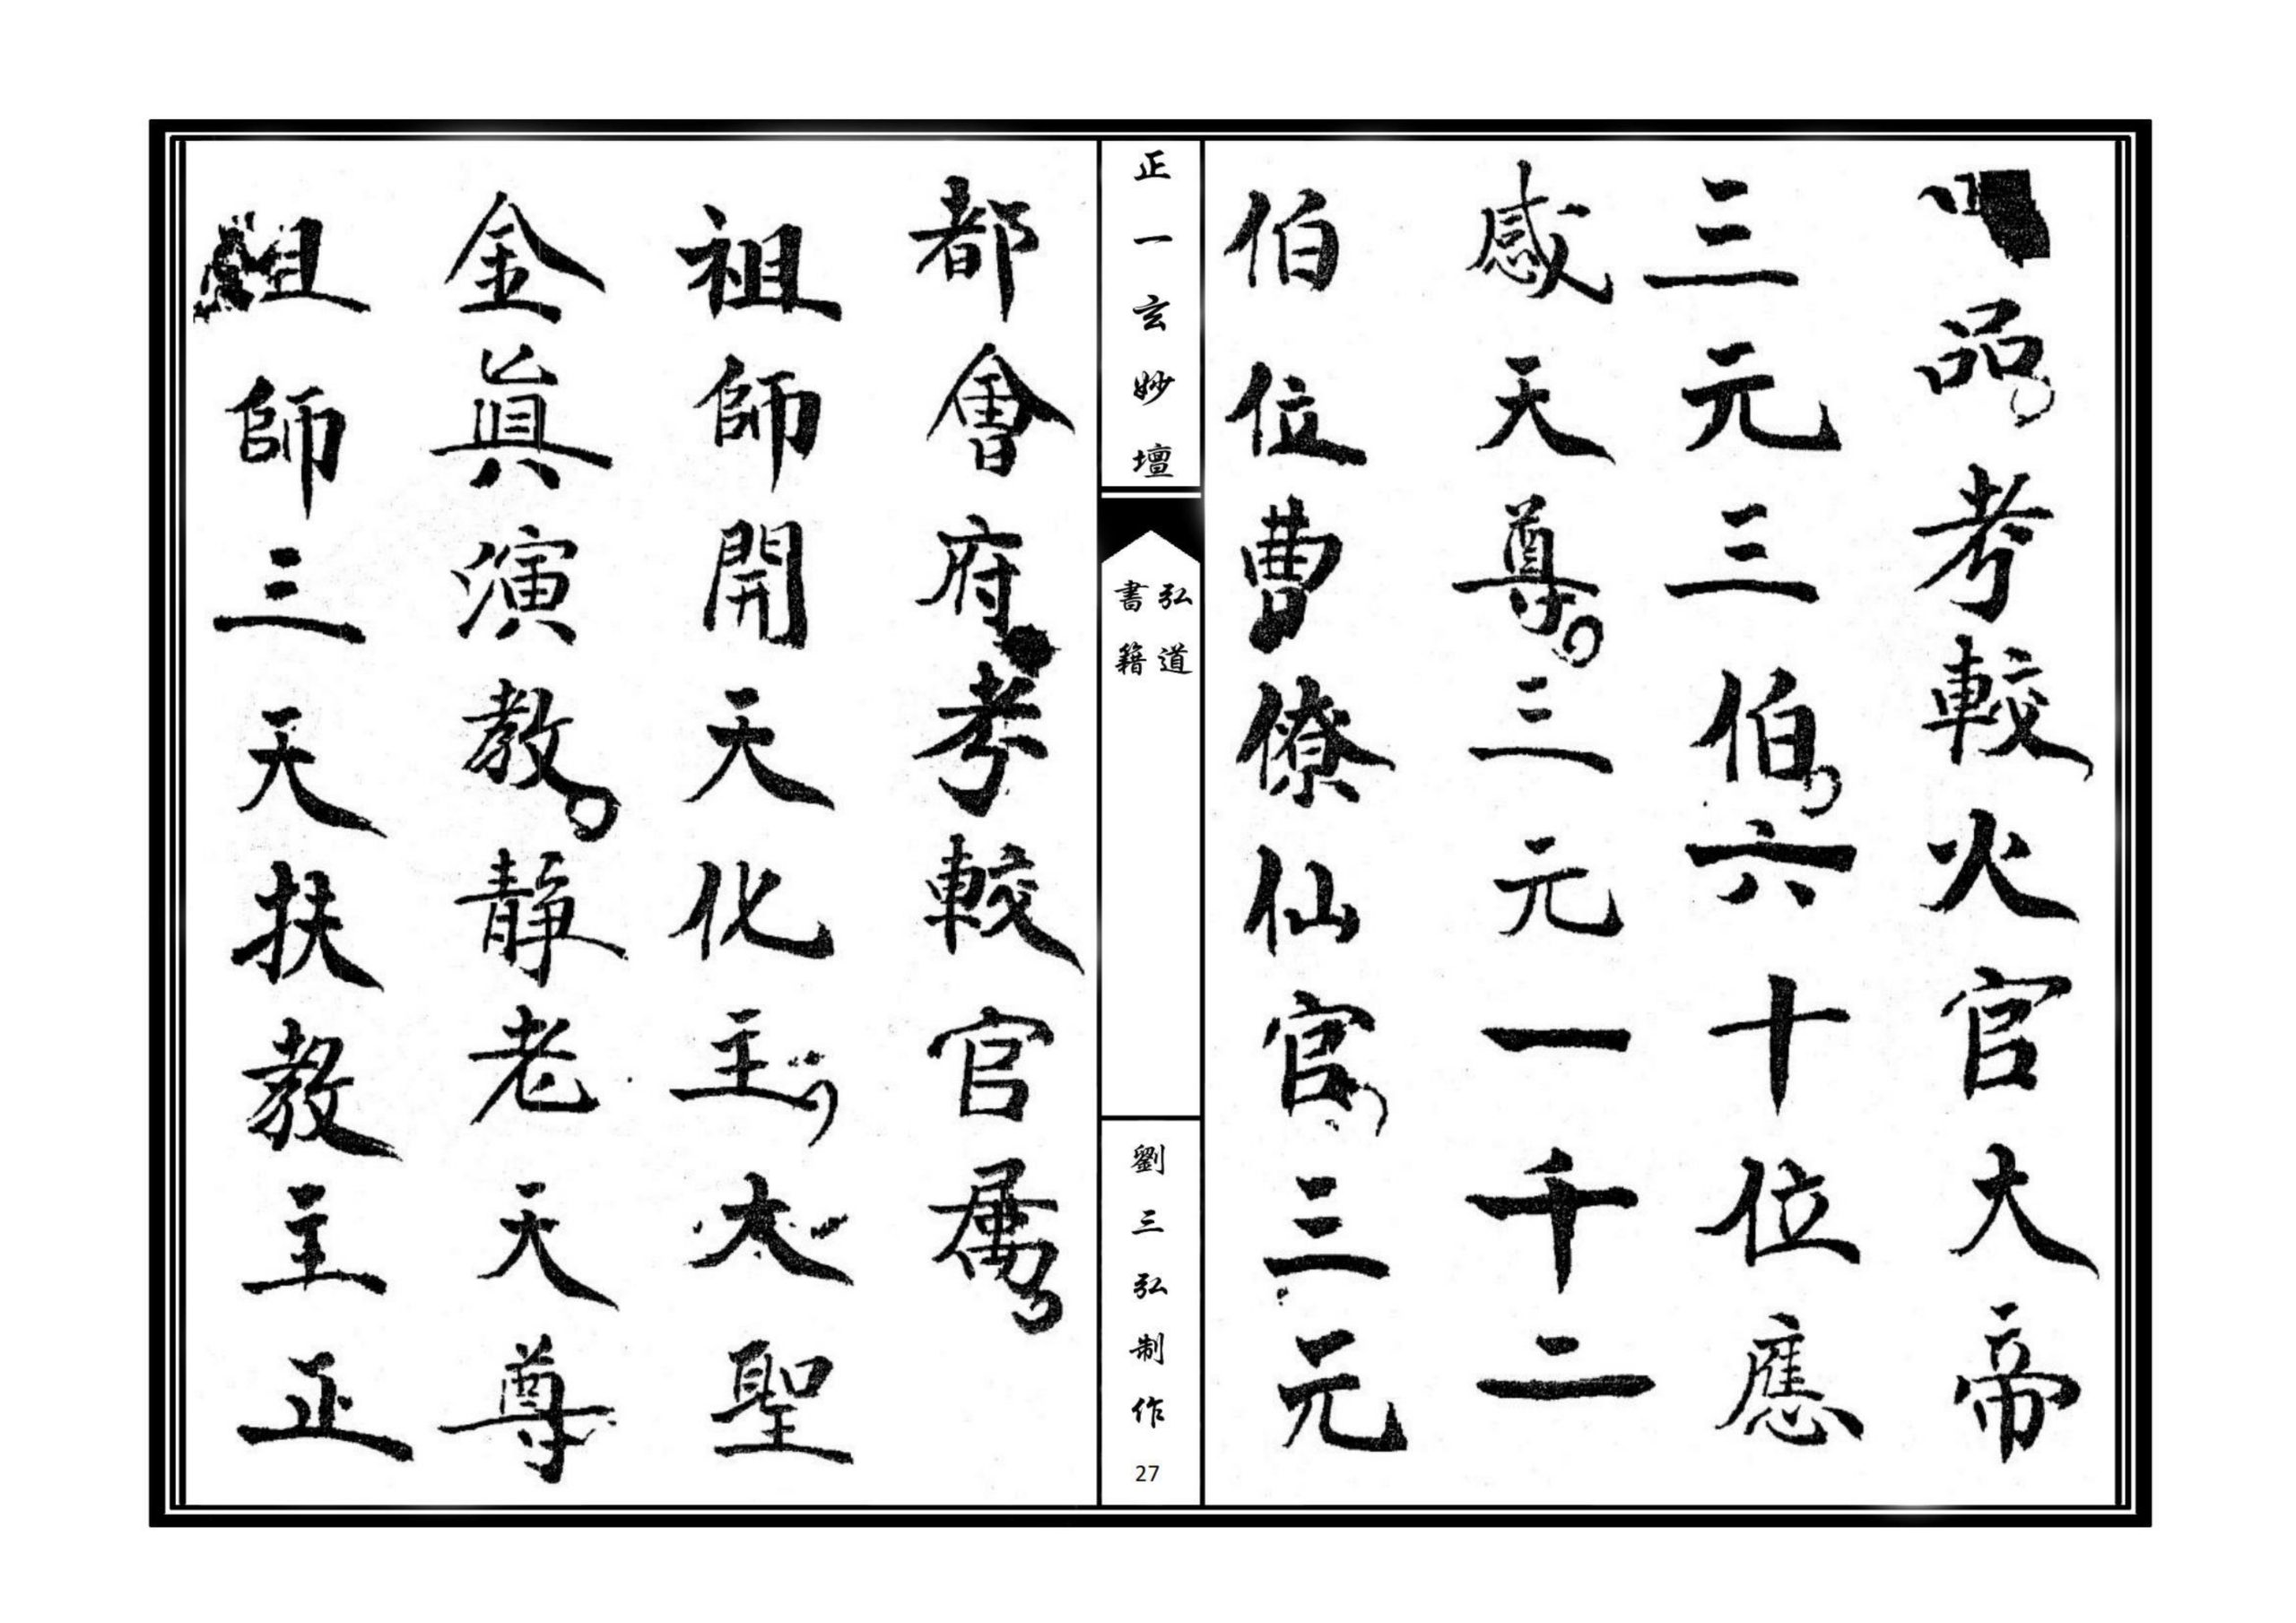 品考較火官大帝
三元三伯六十位應
感天尊三元一千二
伯位曹僚仙官三元
正一玄妙壇
弘道
書籍
劉三弘制作
27
都會府考較官屬
祖師開天化主太聖
金眞演教靜老天尊
祖師三天扶教主正